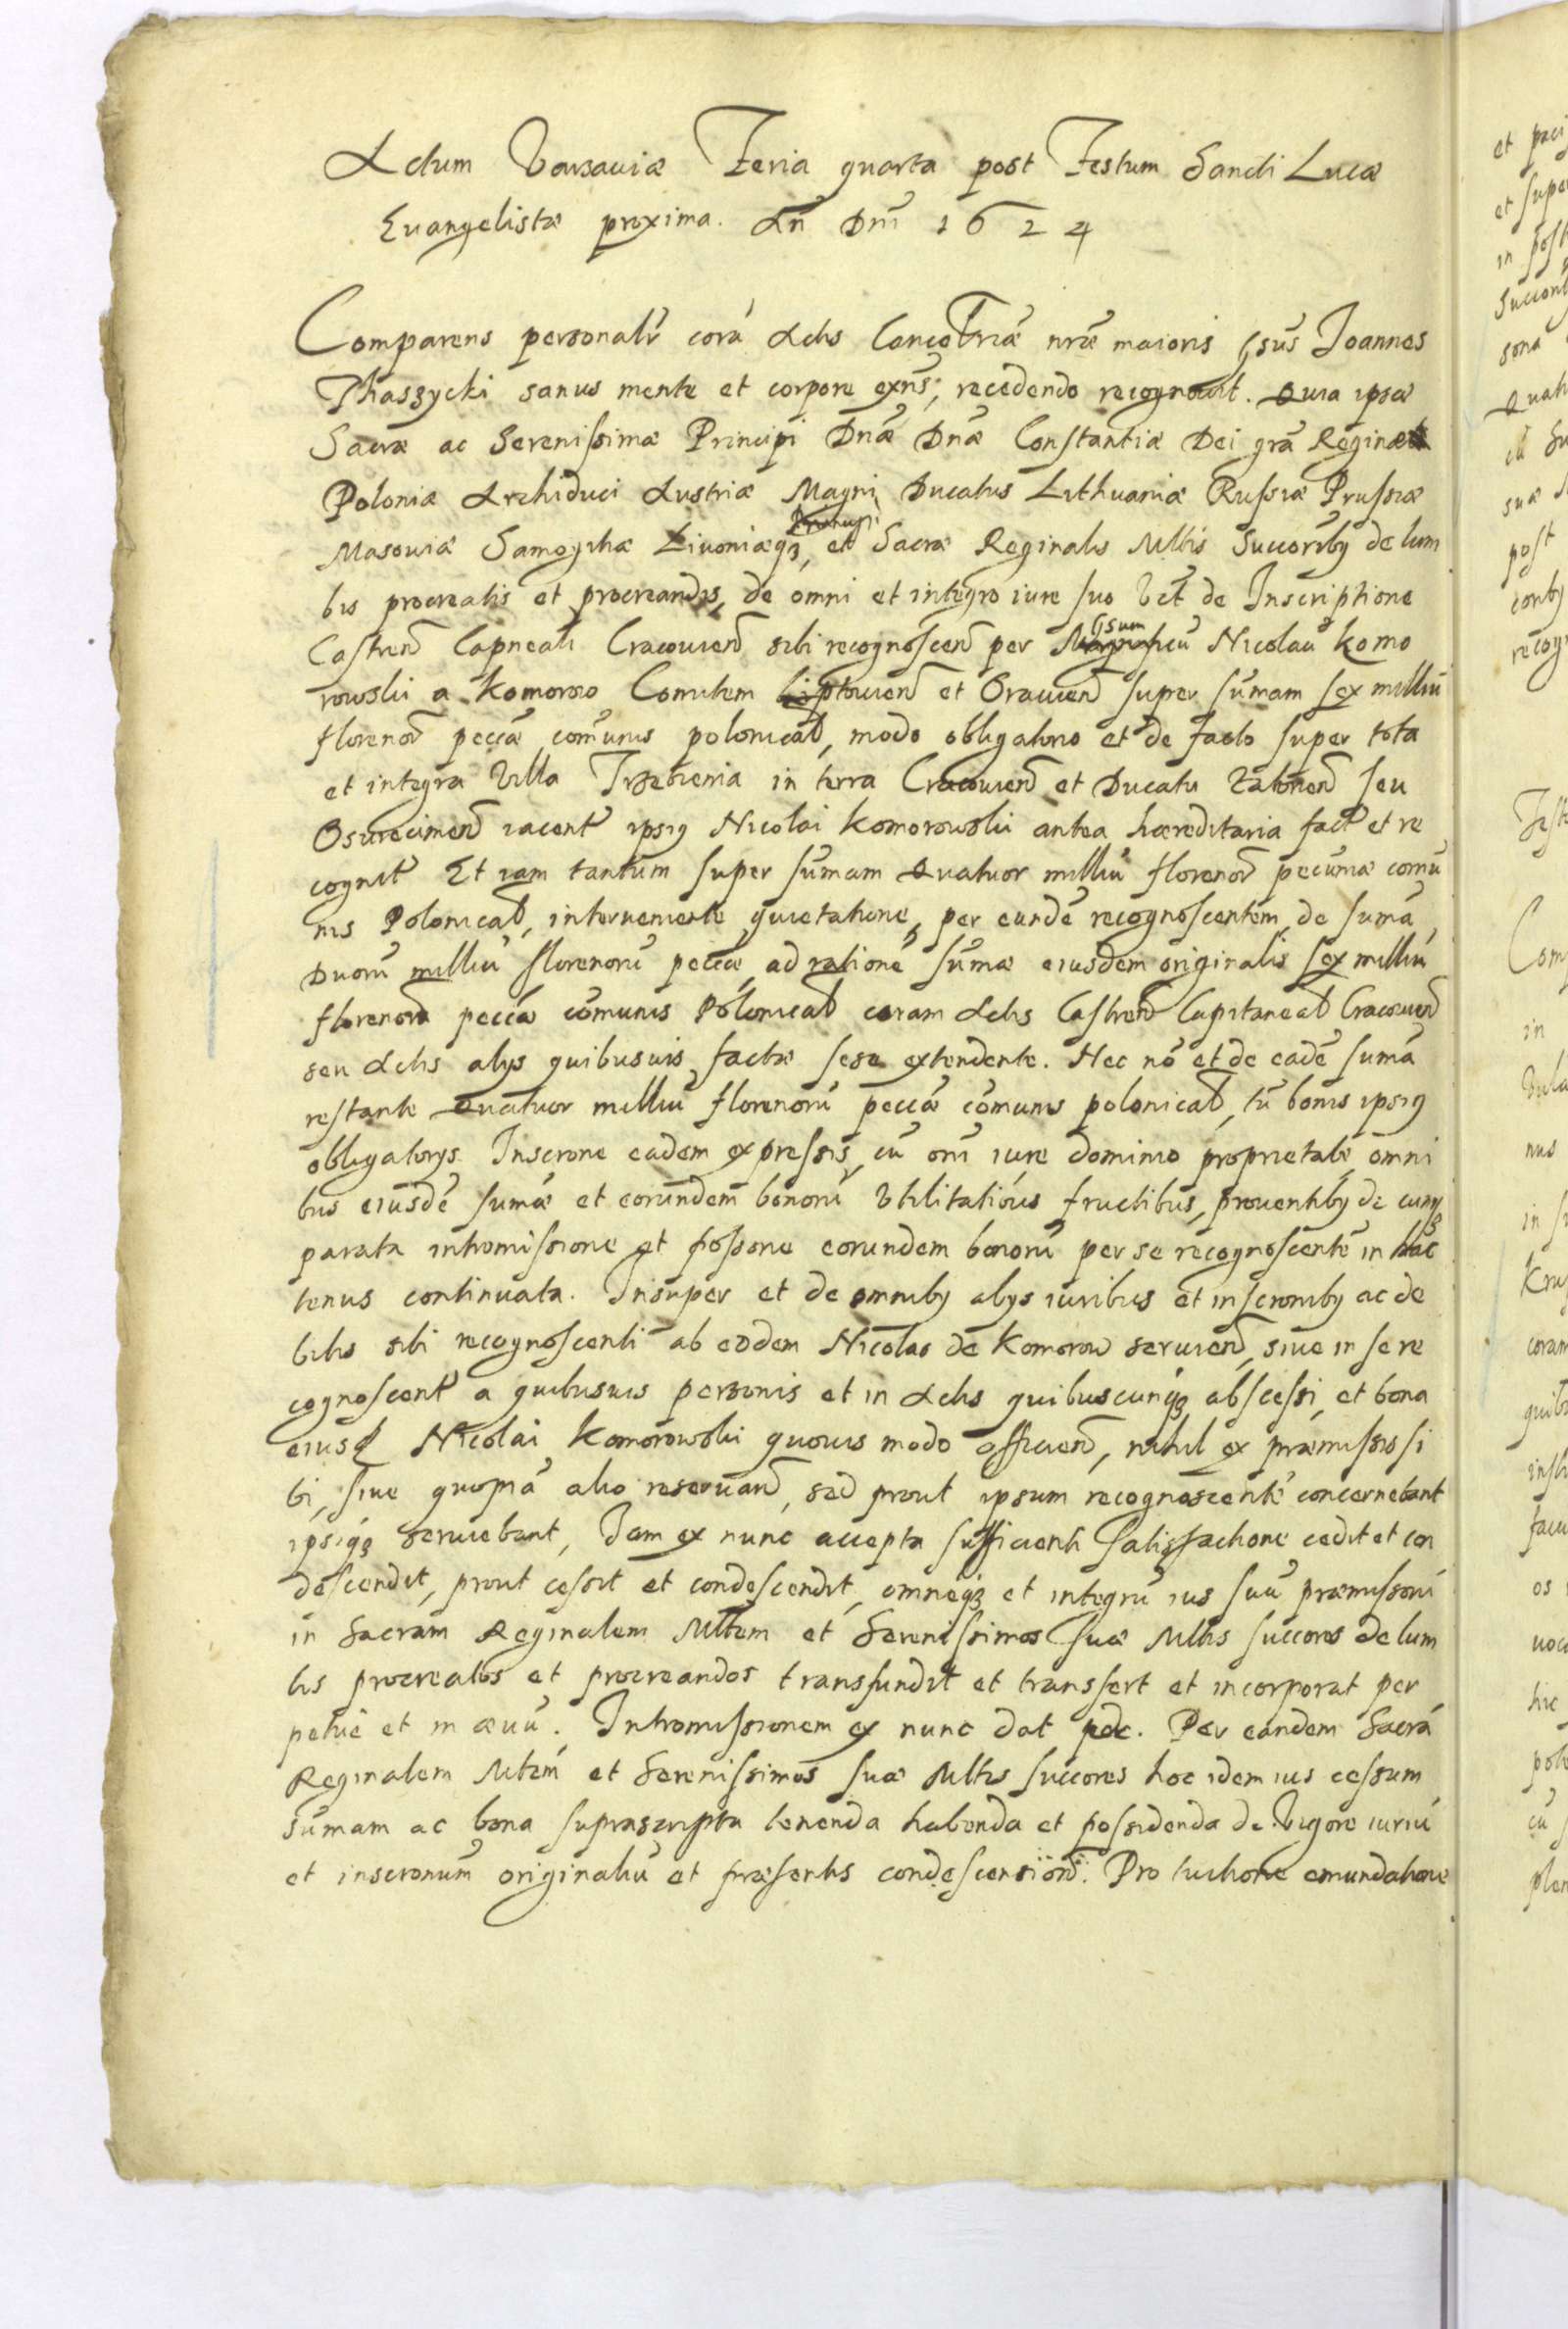 Actum Varsaviæ Feria quarta post Festum Sancti Lucæ
Euangelistæ proxima. Añ Dnī 1624
Comparens personalr̃ corā Actis Cancetriæ nr̃æ maioris Gsus̃ Joannes
Thaszycki sanus mente et corpore exñs, recedendo recognovit. Quia ipsæ
Sacræ ac Serenissimæ Principi Dnæ Dnæ Constantiæ Dei grã Reginæ
Poloniæ Archiduci Austriæ Magni Ducatus Lithuaniæ Russiæ Prussiæ
Masouiæ Samogitiæ Liuoniæq₃, et Sacræ Reginalis Mttis Succoribꝯ de lum
bis procreatis et procreandis, de omni et integro iure suo vět de Inscriptione
Castreñ Capneali Cracouieñ sibi recognosceñ per Gsum Nicolaũ Komo
rowski a Komorow Comitem Liptouieñ et Orauieñ super sũmam sex milliũ
florenoꝝ pecciæ com̃unis polonicał, modo obligatorio et de facto super tota
et integra Villa Trzebienia in terra Cracouieñ et Ducatu Zatorieñ seu
Osuiecimeñ iaceñt ipsiꝯ Nicolai Komorowski antea hæreditaria fact̃ et re
cognit̃ Et iam tantum super sũmam Quatuor milliũ florenoꝝ pecuniæ com̃u
nis Polonicał, interueniente quietatione, per eundẽ recognoscentem, de sum̃a
Duorũ milliũ florenorũ pecciæ ad rationẽ sum̃æ eiusdem originalis sex milliũ
florenorũ pecciæ com̃unis Polonicał coram Actis Castreñ Capitaneał Cracouieñ
seu Actis alijs quibusuis factæ sese extendente. Nec nõ et de eadẽ sum̃a
restante Quatuor milliũ florenorũ pecciæ com̃unis polonicał, tũ bonis ipsiꝯ
obligatorijs Inscrone eadem expressis, cũ om̃i iure dominio proprietate omni
bus eiusdẽ sum̃æ et eorundem bonorũ Vtilitatibus fructibus, prouentibꝯ de cunq₃
parata intromissione et possone eorundem bonorũ per se recognoscentẽ in hac
tenus continuata. Insuper et de omnibꝯ alijs iuribus et inscronibꝯ ac de
bitis sibi recognoscenti ab eodem Nicolao de Komorow seruieñ, siue in se re
cognosceñt a quibusuis personis et in Actis quibuscunq₃ abscessi, et bona
eiusd Nicolai Komorowski quouis modo afficieñ, nihil ex præmissis si
bi, siue quopiã alio reseruañ, sed prout ipsum recognoscentẽ concernebant
ipsiq₃ seruiebant, Iam ex nunc accepta sufficienti satisfactione cedit et con
descendit, prout cessit et condescendit, omneq₃ et integrũ ius suũ præmissorũ
in Sacram Reginalem Mttem et Serenissimos suæ Mttis succores de lum
bis procreatos et procreandos transfundit et transfert et incorporat per
petuẽ et in æuũ. Intromissionem ex nunc dat pdc. Per eandem Sacrã
Reginalem Mttem et Serenissimos suæ Mttis succores hoc idem ius cessum
sum̃am ac bona suprascripta tenenda habenda et possidenda de Vigore iuriũ
et inscronum originaliũ et præsentis condescensioñ. Pro tuitione emundatione